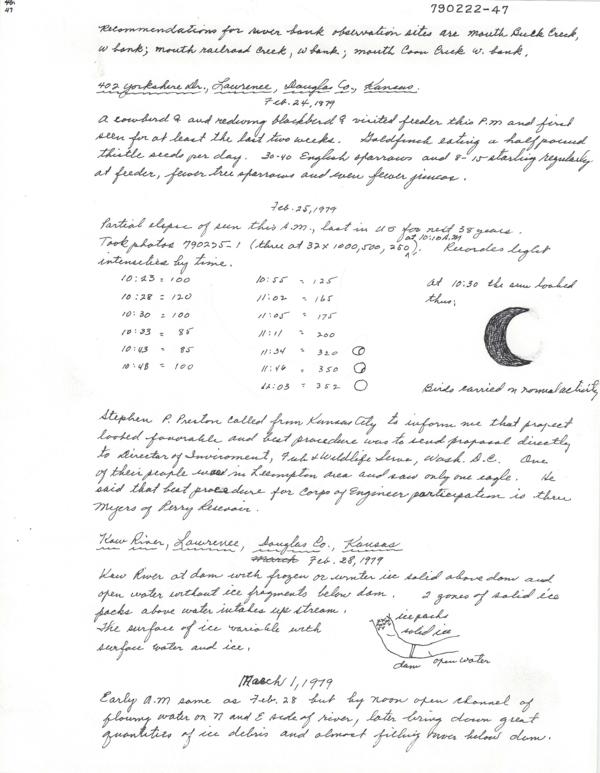 46.
47
790222-47
Recommendations for river bank observation sites are mouth Buck Creek,
W bank; mouth railroad Creek, W bank; mouth Coon Creek W. bank.
402 Yorkshire Dr., Lawrence, Douglas Co., Kansas.
Feb. 24, 1979
A cowbird ♀ and redwing blackbird ♀ visited feeder this P.M and first
seen for at least the last two weeks. Goldfinch eating a half pound
thistle seeds per day. 30-40 English sparrows and 8-15 starling regularly
at feeder, fewer tree sparrows and even fewer juncos.
Feb. 25, 1979
Partial elipse of sun this A.M., last in US for next 38 years.
Took photos 790225-1 (three at 32 x 1000, 500, 250 at 10:10 A.M). Recorded light
intensities by time.
10:23 = 100 10:55 = 125 At 10:30 the sun looked
10:28 = 120 11:02 = 165 thus:
10:30 = 100 11:05 = 175
10:33 = 85 11:11 = 200
10:43 = 85 11:34 = 320
10:48 = 100 11:46 = 350
12:03 = 352 Birds carried on normal activity
Stephen P. Preston called from Kansas City to inform me that project
looked favorable and best procedure was to send proposal directly
to Director of Enviroment, Fish & Wildlife Serva, Wash. D.C. One
of their people was in Lecompton area and saw only one eagle. He
said that best procedure for Corps of Engineer participation is thru
Myers of Perry Resevoir.
Kaw River, Lawrence, Douglas Co., Kansas
March Feb. 28, 1979
Kaw River at dam with frozen or winter ice solid above dam and
open water without ice fragments below dam. 2 zones of solid ice
packs above water intakes up stream.
The surface of ice variable with
surface water and ice.
ice packs
solid ice
dam open water
March 1, 1979
Early A.M same as Feb. 28 but by noon open channel of
flowing water on N and E side of river, later bring down great
quantities of ice debris and almost filling river below dam.